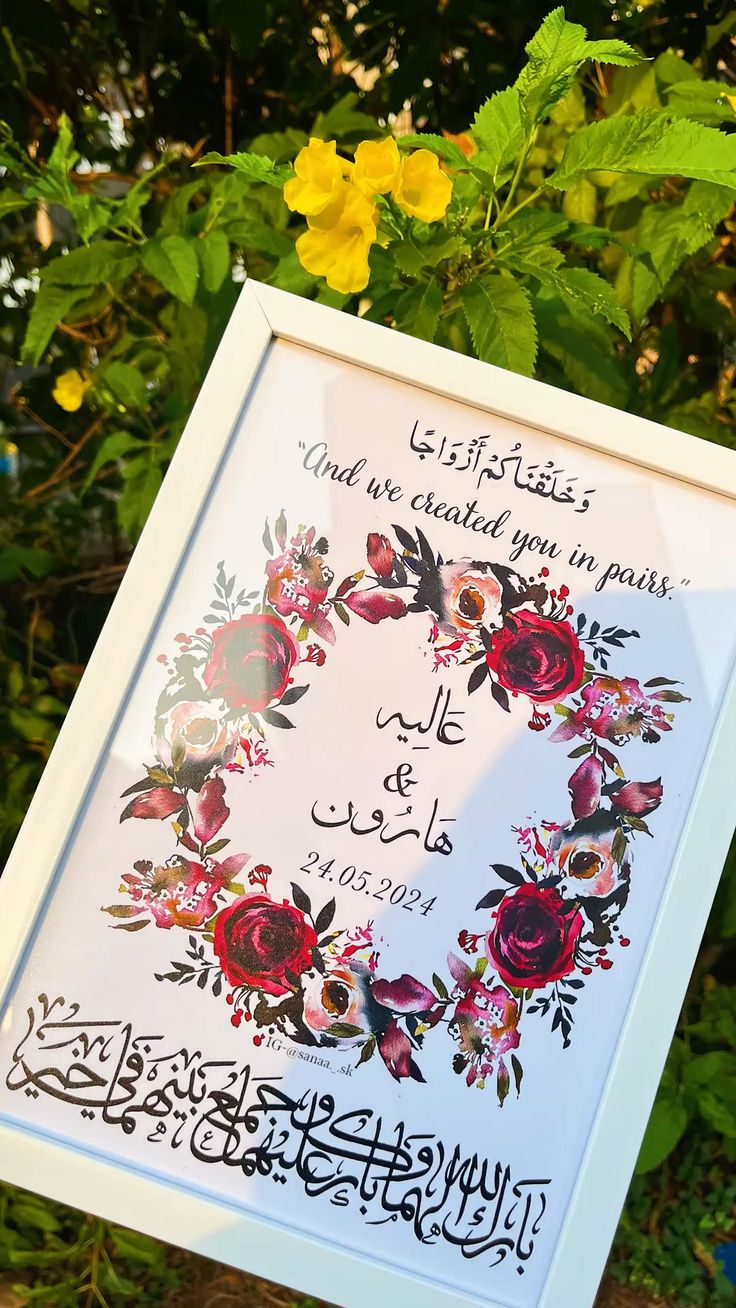 وَخَلَقْنَاكُمْ أَزْوَاجًا
"And we created you in pairs."
عَالِيه
&
هَارُون
24.05.2024
IG-@sanaa._.sk
بَارَكَ اللهُ لَهُمَا وَبَارَكَ عَلَيْهِمَا وَجَمَعَ بَيْنَهُمَا فِي خَيْرٍ